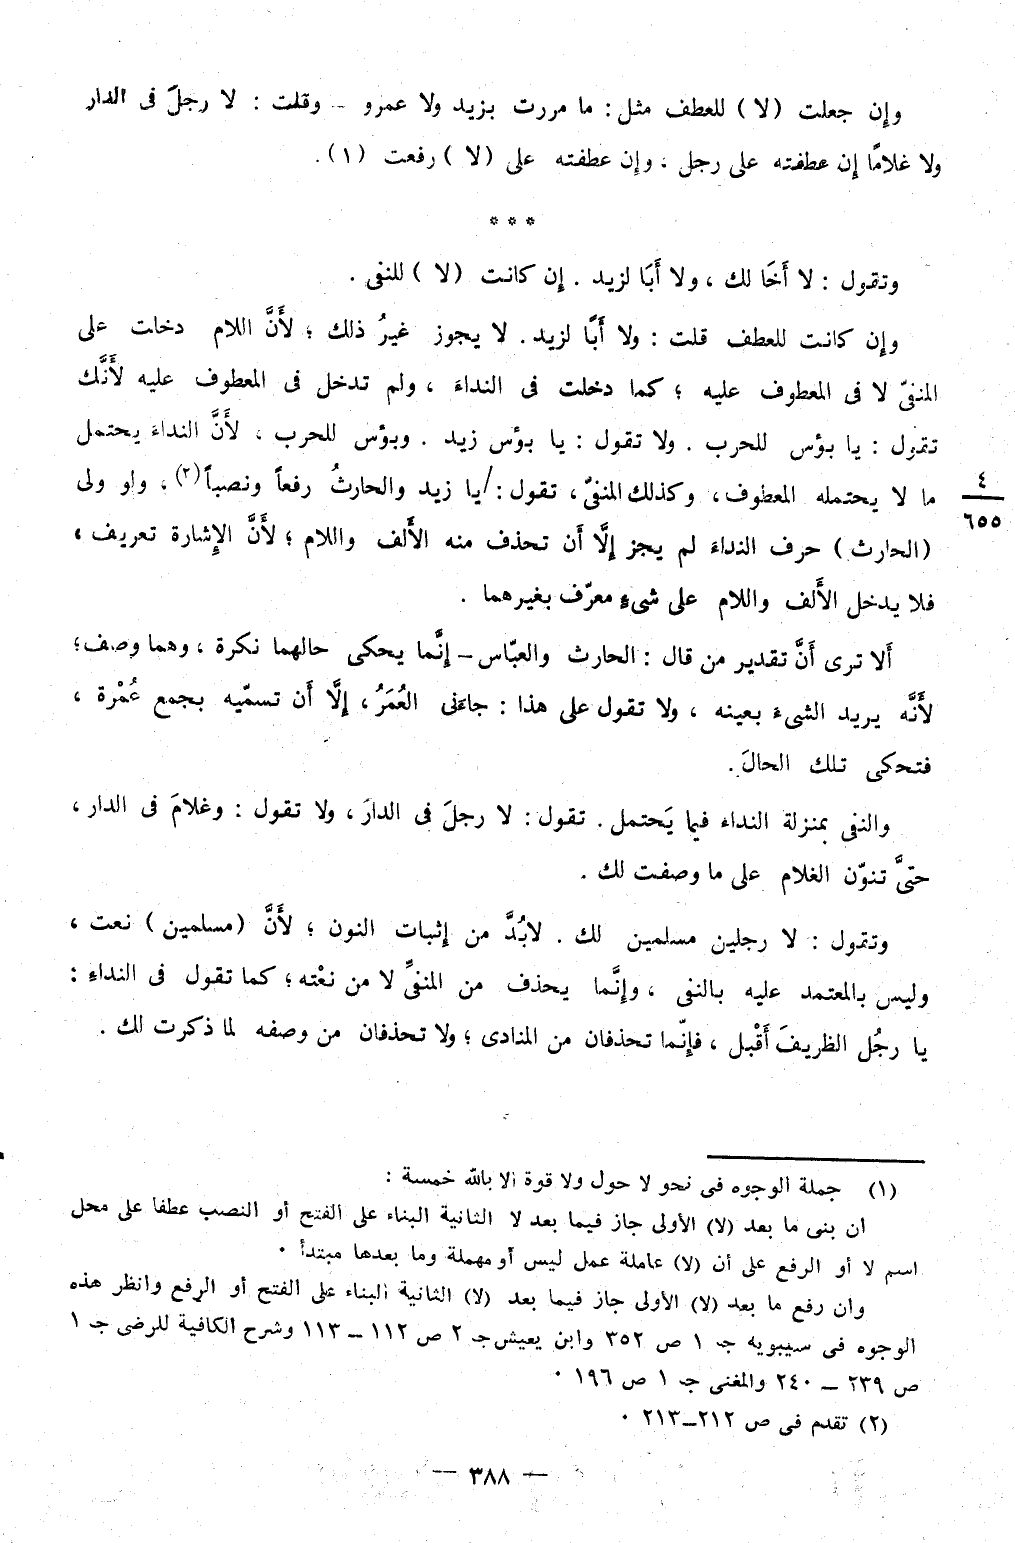 وإن جعلت (لا) للعطف مثل: ما مررت بزيد ولا عمرو – وقلت: لا رجلَ فى الدار
ولا غلامًا إن عطفته على رجل، وإن عطفته على (لا) رفعت (١).
* * *
وتقول: لا أَخَا لك، ولا أَبَا لزيد. إن كانت (لا) للنفى.
وإن كانت للعطف قلت: ولا أَبًا لزيد. لا يجوز غيرُ ذلك؛ لأَنَّ اللام دخلت على
المنفىّ لا فى المعطوف عليه؛ كما دخلت فى النداءَ، ولم تدخل فى المعطوف عليه لأَنَّك
تقول: يا بؤس للحرب. ولا تقول: يا بؤس زيد. وبؤس للحرب، لأَنَّ النداءَ يحتمل
ما لا يحتمله المعطوف، وكذلك المنفىّ، تقول:/يا زيد والحارثُ رفعاً ونصباً(٢)، ولو ولى
٤
٦٥٥
(الحارث) حرف النداءَ لم يجز إلَّا أن تحذف منه الأَلف واللام؛ لأَنَّ الإشارة تعريف،
فلا يدخل الأَلف واللام على شىءٍ معرّف بغيرهما.
ألا ترى أَنَّ تقدير من قال: الحارث والعبّاس – إنَّما يحكى حالهما نكرة، وهما وصف؛
لأَنَّه يريد الشىءَ بعينه، ولا تقول على هذا: جاءَنى العُمَرُ، إلَّا أن تسمّيه بجمع عُمْرة،
فتحكى تلك الحالَ.
والنفى بمنزلة النداء فيما يَحتمل. تقول: لا رجلَ فى الدارَ، ولا تقول: وغلامَ فى الدار،
حتىَّ تنوّن الغلام على ما وصفت لك.
وتقول: لا رجلين مسلمين لك. لابُدَّ من إثبات النون؛ لأَنَّ (مسلمين) نعت،
وليس بالمعتمد عليه بالنفى، وإنَّما يحذف من المنفىِّ لا من نعْته؛ كما تقول فى النداءِ:
يا رجُل الظريفَ أَقْبل، فإنّما تحذفان من المنادى؛ ولا تحذفان من وصفه لما ذكرت لك.
(١) جملة الوجوه فى نحو لا حول ولا قوة الا بالله خمسة:
ان بنى ما بعد (لا) الأولى جاز فيما بعد لا الثانية البناء على الفتح أو النصب عطفا على محل
اسم لا أو الرفع على أن (لا) عاملة عمل ليس أو مهملة وما بعدها مبتدأ.
وان رفع ما بعد (لا) الأولى جاز فيما بعد (لا) الثانية البناء على الفتح أو الرفع وانظر هذه
الوجوه فى سيبويه جـ ١ ص ٣٥٢ وابن يعيش جـ ٢ ص ١١٢ – ١١٣ وشرح الكافية للرضى جـ ١
ص ٢٣٩ – ٢٤٠ والمغنى جـ ١ ص ١٩٦.
(٢) تقدم فى ص ٢١٢–٢١٣.
— ٣٨٨ —